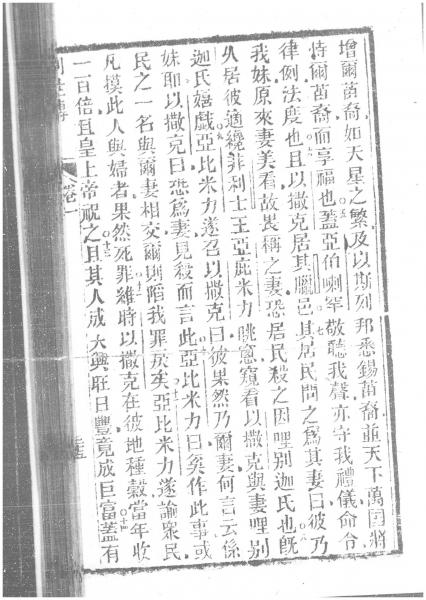 增爾苗裔如天星之繁及以斯列邦悉錫苗裔並天下萬國將
恃爾苗裔而享福也蓋亞伯喇罕敬聽我聲亦守我禮儀命令
律例法度也且以撒克居其臘邑其居民問之爲其妻曰彼乃
我妹原來妻美看故畏稱之妻恐居民殺之因哩別迦氏也旣
久居彼適纔非利士王亞庇米力眺窓窺看以撒克與妻哩別
迦氏嬉戲亞比米力遂召以撒克曰彼果然乃爾妻何言云係
妹耶以撒克曰恐爲妻見殺而言此亞比米力曰奚作此事或
民之一名與爾妻相交爾則陷我罪戾矣亞比米力遂諭衆民
凡摸此人與婦者果然死罪維時以撒克在彼地種穀當年收
一百倍且皇上帝祝之且其人成大興旺日豐竟成巨富蓋有
卷一